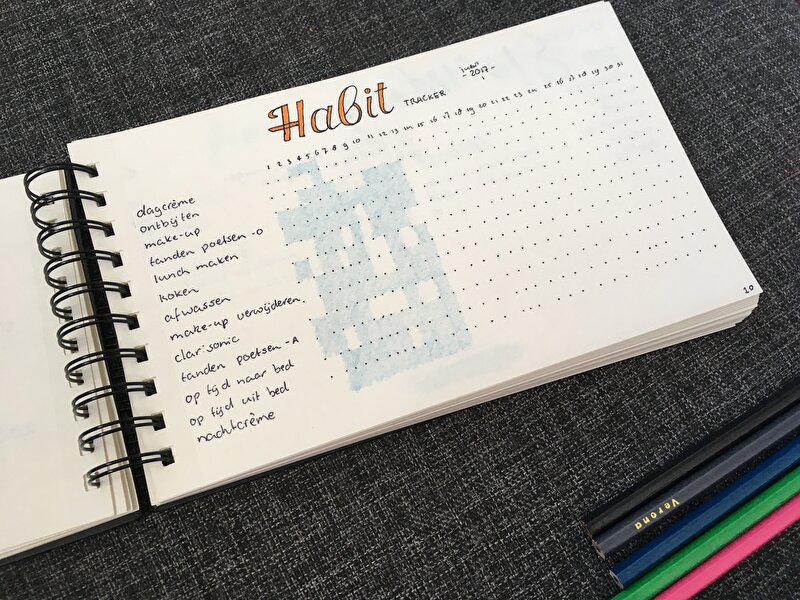 Habit TRACKER
- 2017 -
1 2 3 4 5 6 7 8 9 10 11 12 13 14 15 16 17 18 19 20 21 22 23 24 25 26 27 28 29 30 31
dagcrème
ontbijten
make-up
tanden poetsen -O
lunch maken
koken
afwassen
make-up verwijderen
clarisonic
tanden poetsen -A
op tijd naar bed
op tijd uit bed
nachtcrème
10
Verona